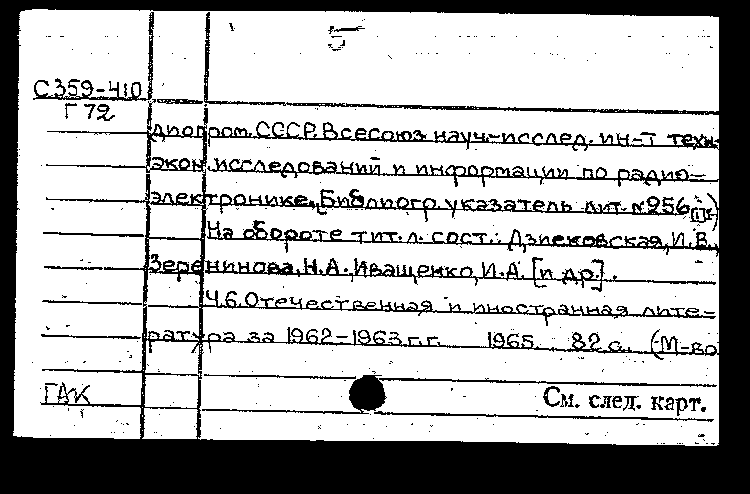 5
С359-410
Г72
диопром СССР. Всесоюз науч-исслед. ин-т техн-
экон. исследований и информации по радио-
электронике. Библиогр. указатель лит. №256
На обороте тит. л. сост.: Дзиековская, И.В.,
Зеренинова, Н.А., Иващенко, И.А. [и др.].
Ч.6. Отечественная и иностранная лите-
ратура за 1962-1963 г.г. 1965. 82 с. (М-во
ГАК
См. след. карт.